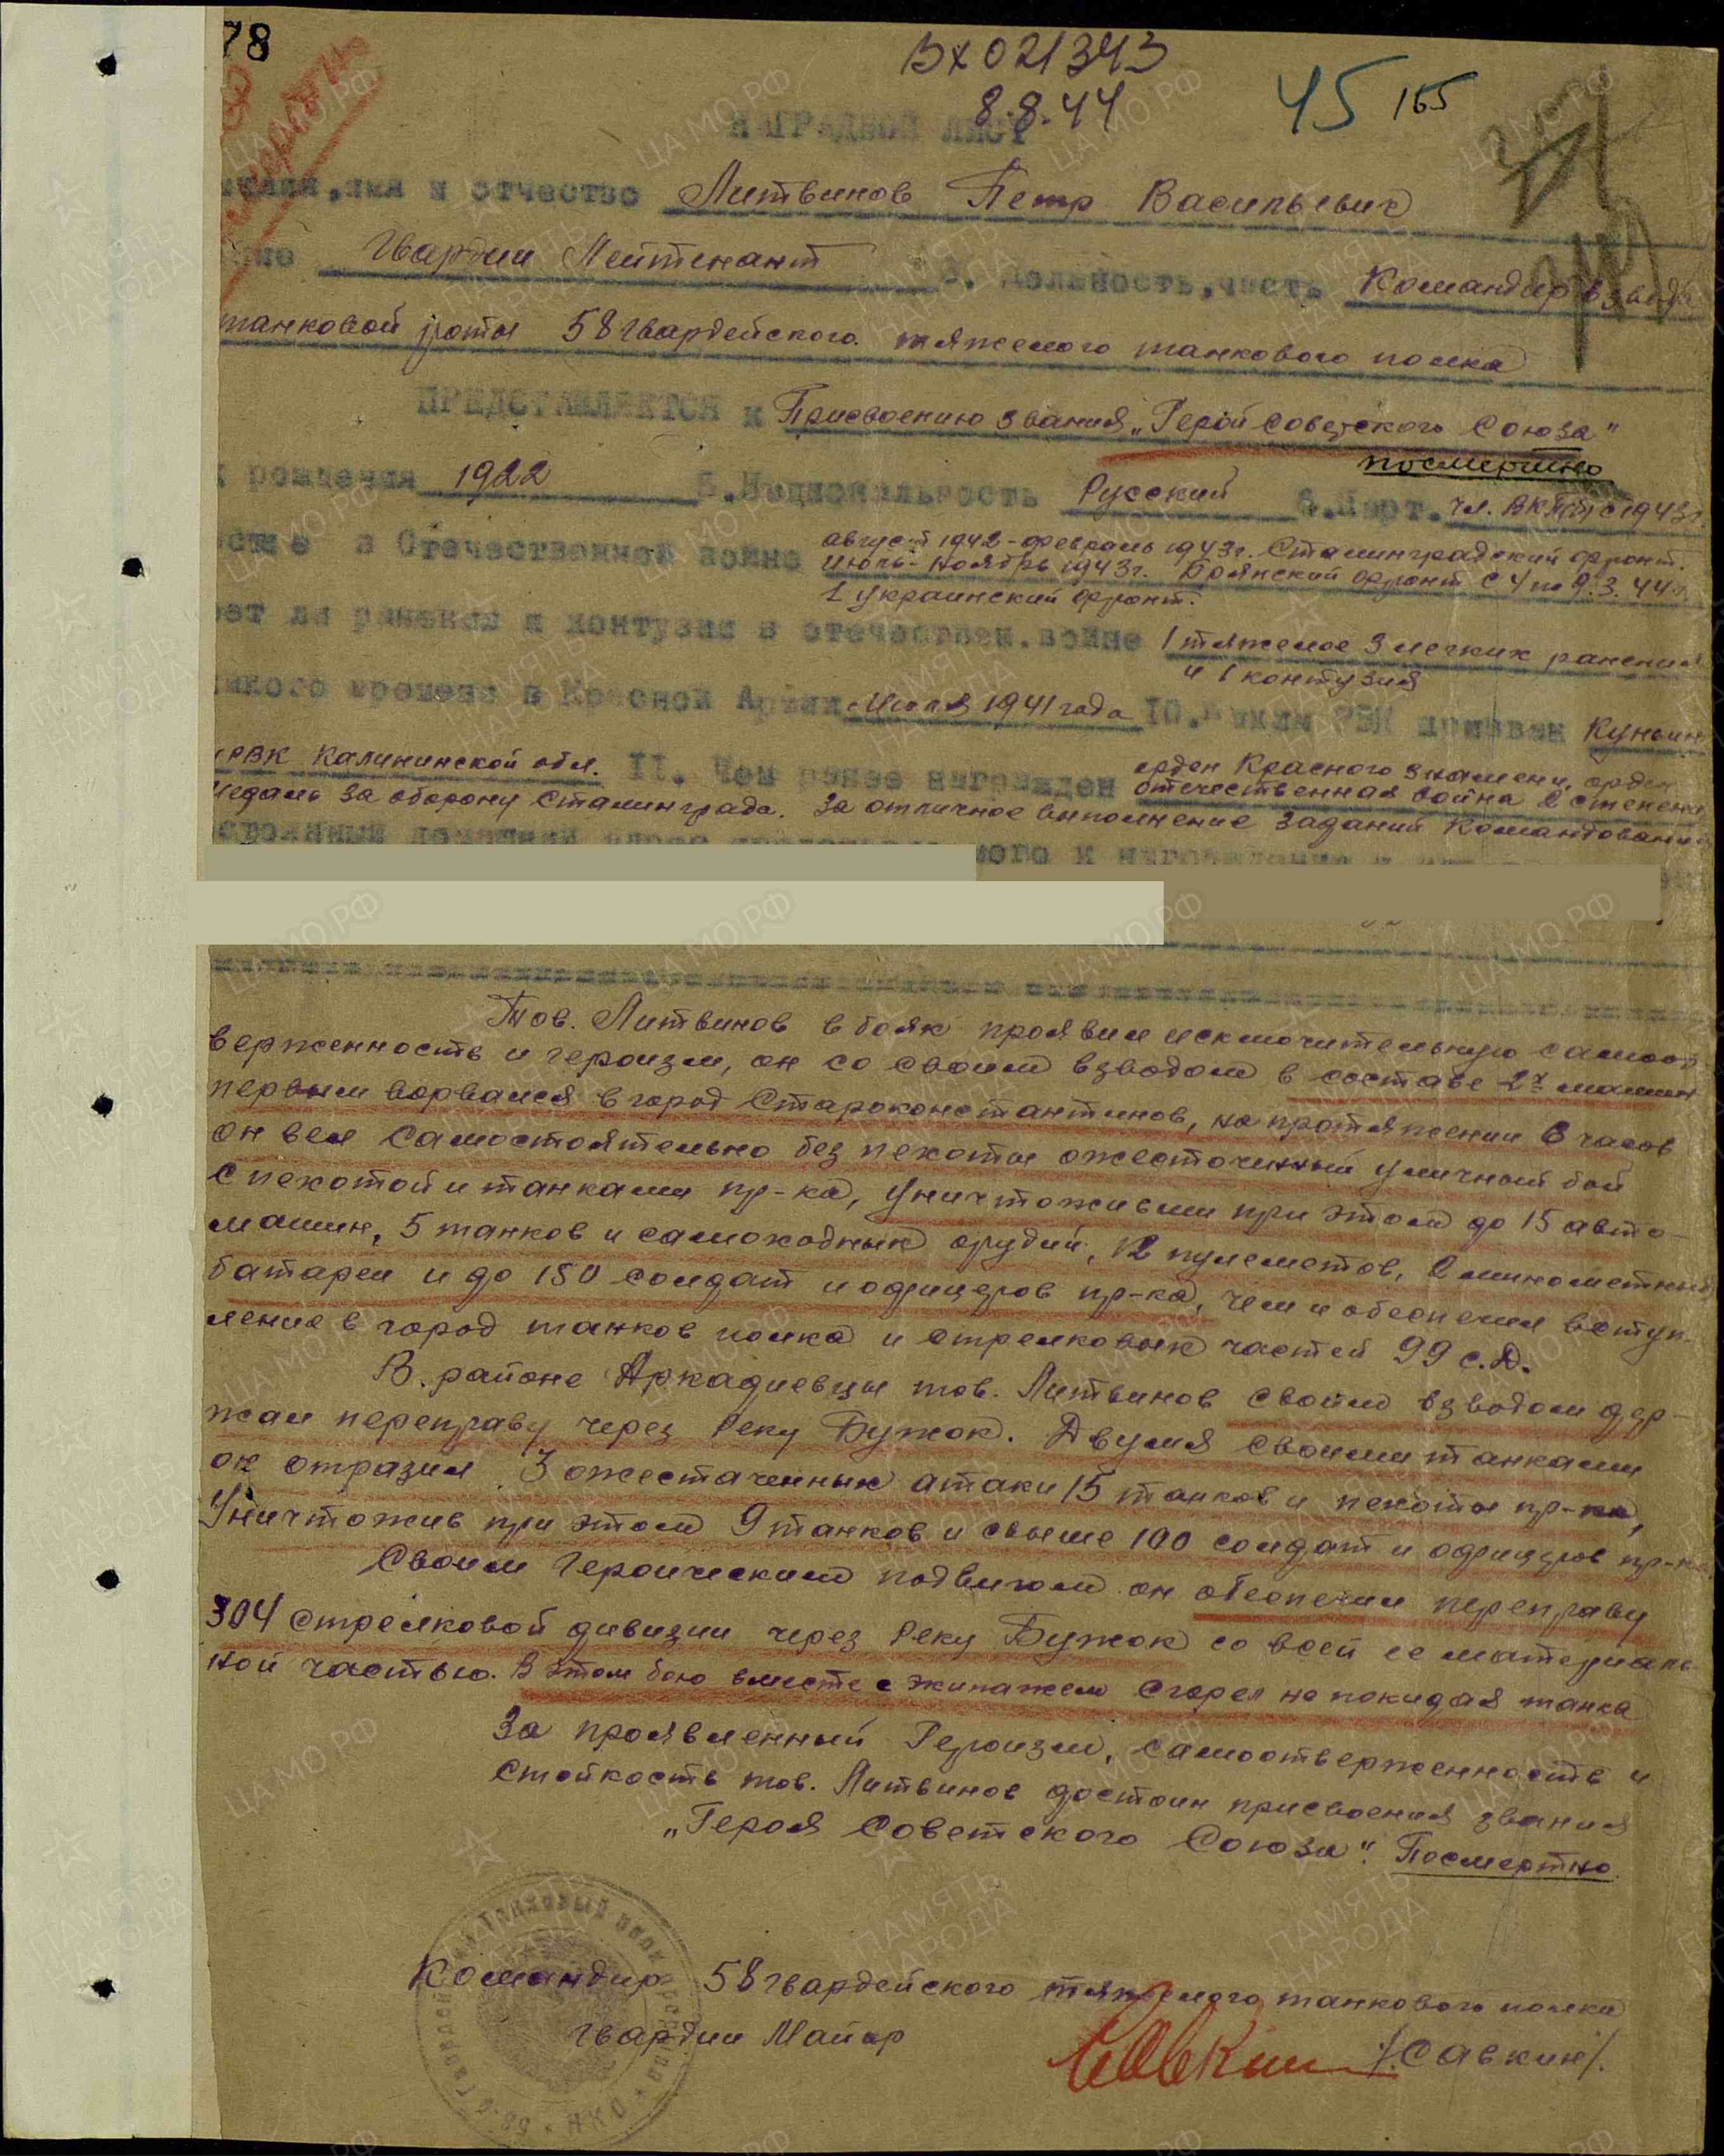 78
Вх 021343
8.8.44
45 165
НАГРАДНОЙ ЛИСТ
имя и отчество Литвинов Петр Васильевич
Гвардии Лейтенант 3. Должность, часть Командир взвода
танковой роты 58 гвардейского тяжелого танкового полка
ПРЕДСТАВЛЯЕТСЯ к Присвоению звания „Герой Советского Союза"
посмертно
рождения 1922 5. Национальность Русский 6. Парт. чл. ВКП(б) с 1943г
в Отечественной войне август 1942 - февраль 1943г. Сталинградский фронт.
Июль - Ноябрь 1943г. Брянский фронт с 4 по 9.3.44г.
1 украинский фронт.
ет ли ранения и контузии в отечествен. войне 1 тяжелое 3 легких ранения
и 1 контузия
какого времени в Красной Армии Июля 1941 года 10. Каким РВК призван Куньин
РВК Калининской обл. 11. Чем ранее награжден орден Красного знамени, орден
отечественная война 2 степени
медаль За оборону Сталинграда. За отличное выполнение заданий Командования
Тов. Литвинов в боях проявил исключительную самоот
верженность и героизм, он со своим взводом в составе 2х машин
первым ворвался в город Староконстантинов, на протяжении 6 часов
он вел самостоятельно без пехоты ожесточенный уличный бой
с пехотой и танками пр-ка, уничтоживши при этом до 15 авто-
машин, 5 танков и самоходных орудий, 12 пулеметов, 2 минометных
батареи и до 150 солдат и офицеров пр-ка, чем и обеспечил вступ-
ление в город танков полка и стрелковых частей 99 с.д.
В районе Аркадиевцы тов. Литвинов своим взводом дер-
жал переправу через Реку Бужок. Двумя своими танками
он отразил 3 ожесточенных атаки 15 танков и пехоты пр-ка,
Уничтожив при этом 9 танков и свыше 100 солдат и офицеров пр-ка
Своим Героическим подвигом он обеспечил переправу
304 стрелковой дивизии через Реку Бужок со всей ее материаль
ной частью. В этом бою вместе с экипажем сгорел не покидая танка
За проявленный Героизм, самоотверженность и
стойкость тов. Литвинов достоин присвоения звания
„Героя Советского Союза". Посмертно
Командир 58 гвардейского тяжелого танкового полка
гвардии Майор Савкин /Савкин/.